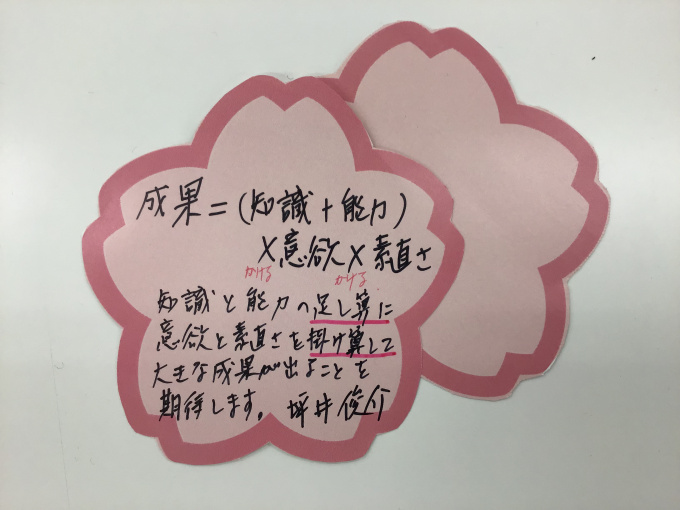 成果=(知識+能力)
×意欲×素直さ
かける かける
知識と能力の足し算に
意欲と素直さを掛け算して
大きな成果が出ることを
期待します。 坪井俊介